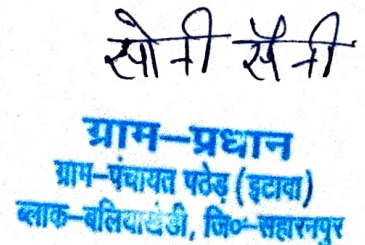 सोनी सैनी
ग्राम-प्रधान
ग्राम-पंचायत पठेड़ (इटावा)
ब्लाक-बलियाखेडी, जि०-सहारनपुर